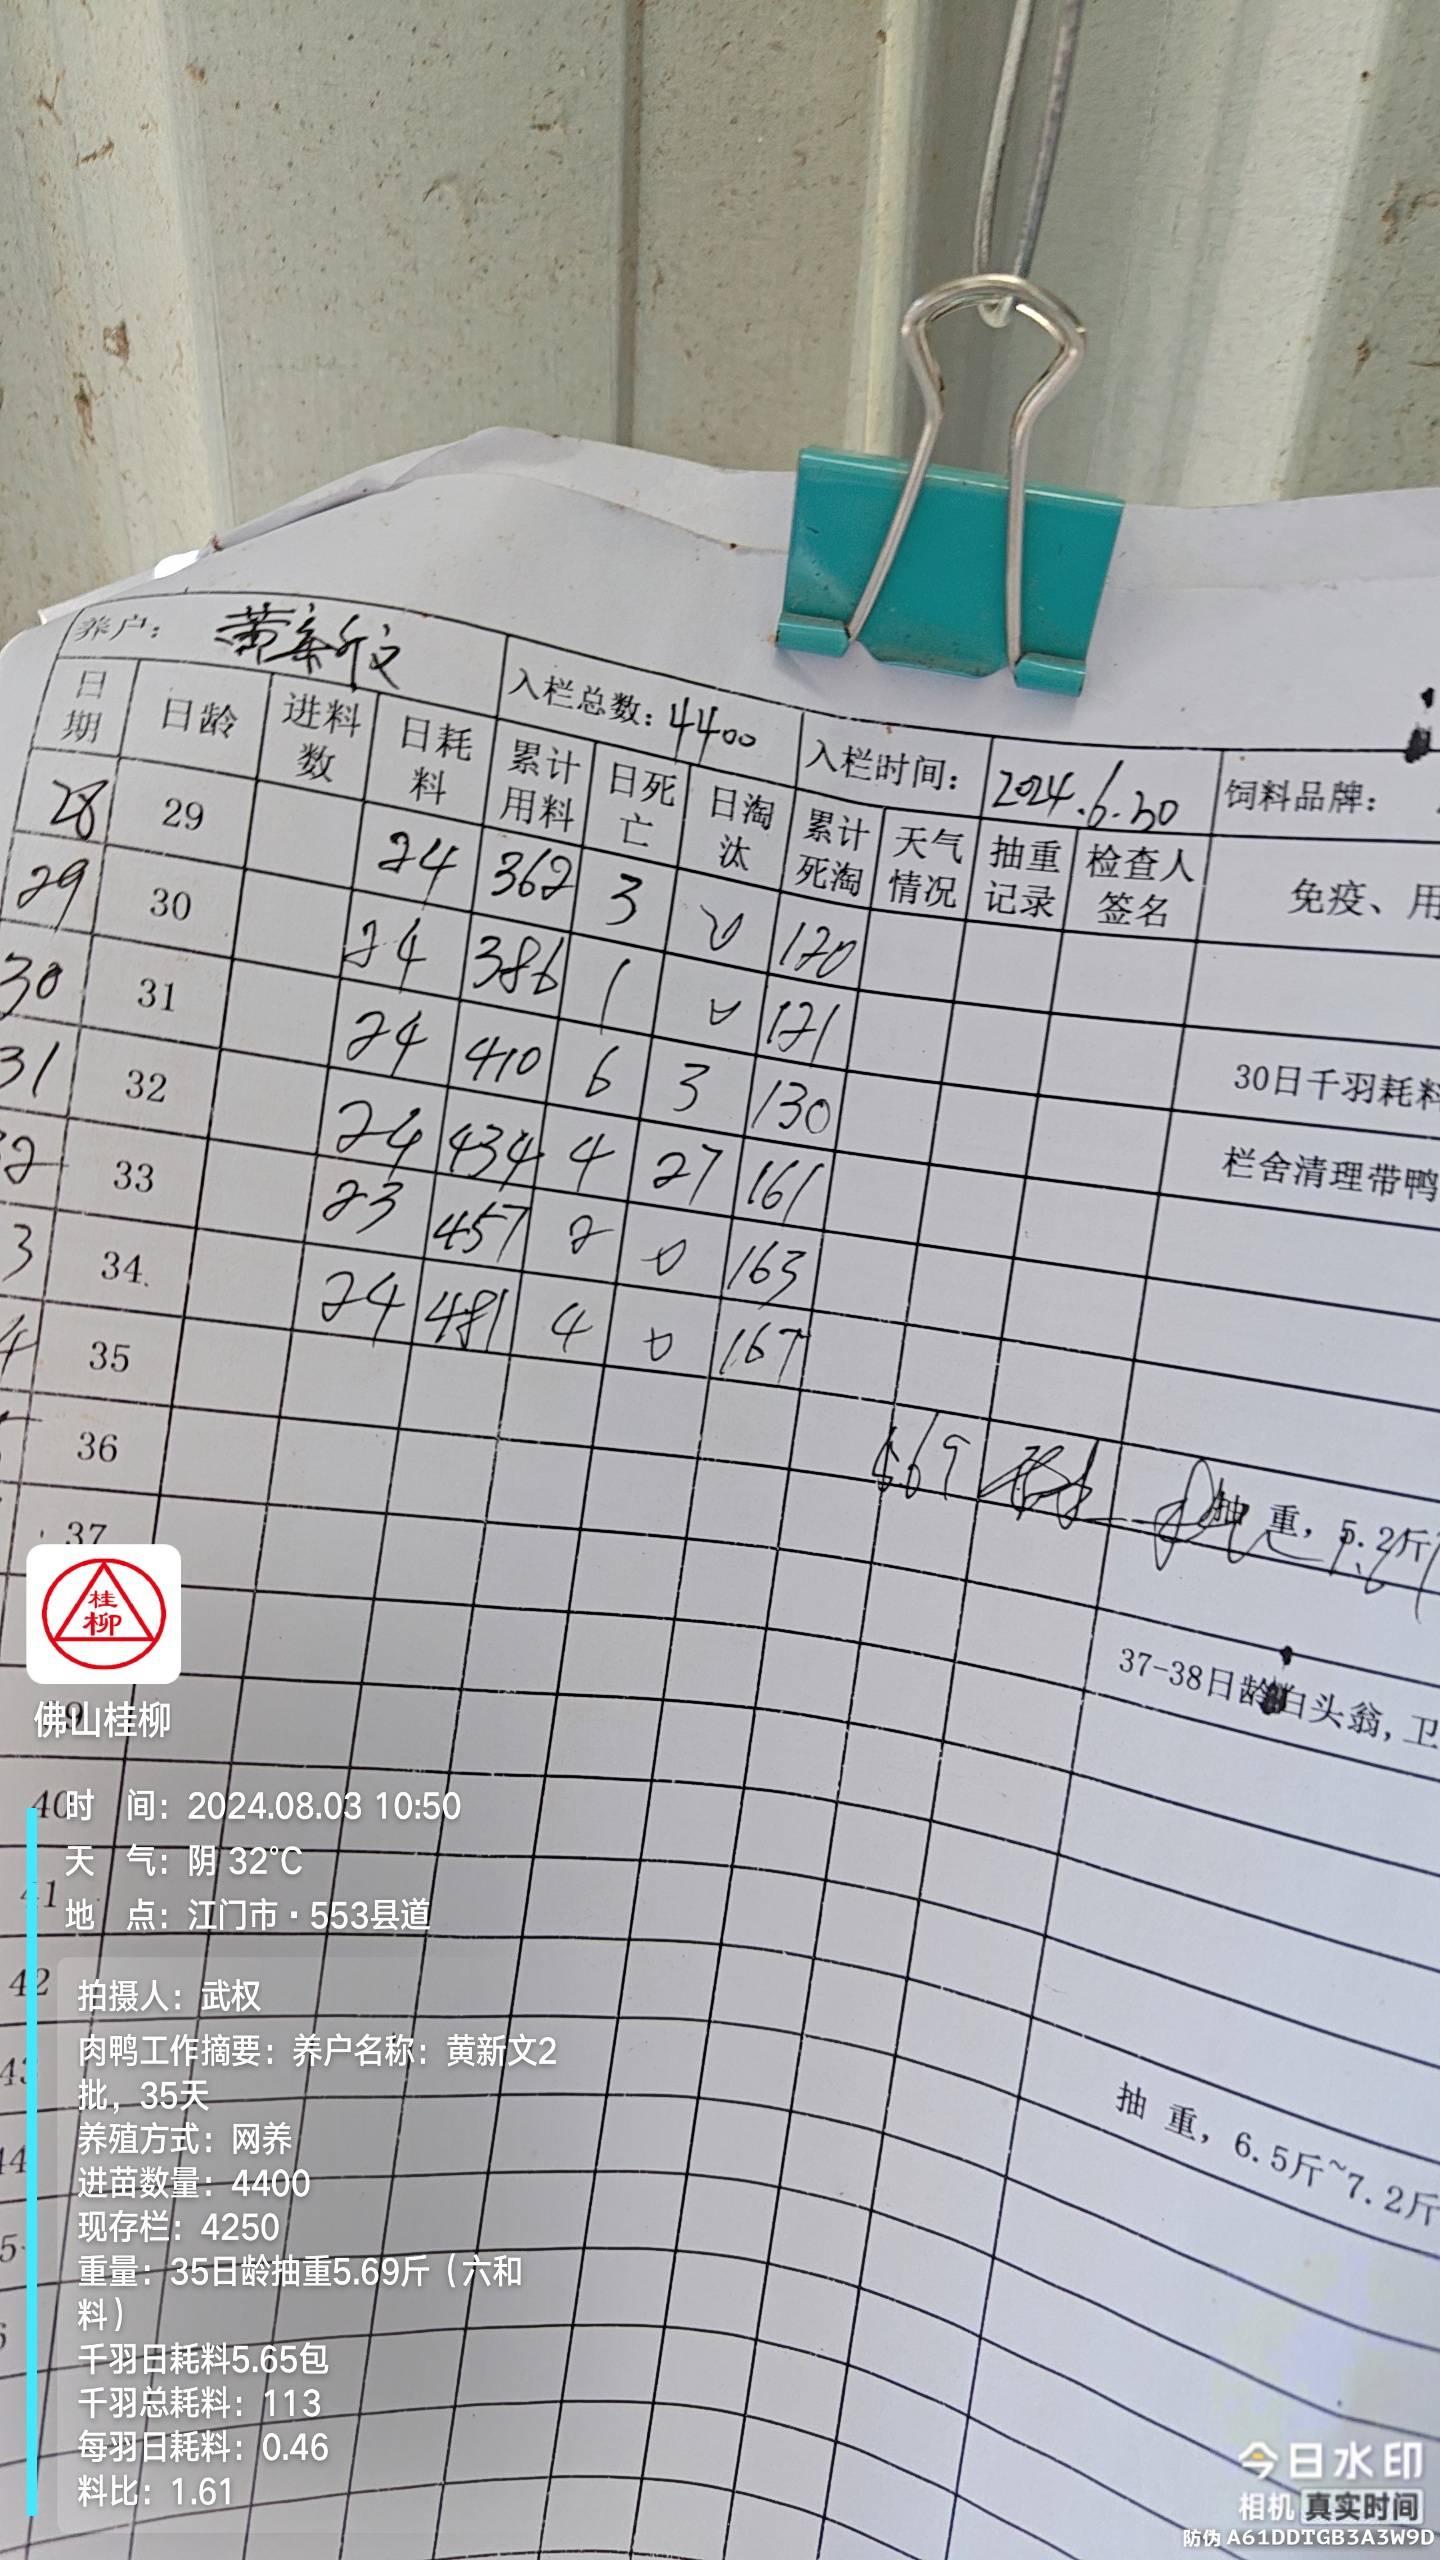 养户： 黄新文 入栏总数：4400 入栏时间： 2024.6.30 饲料品牌：
日期 日龄 进料数 日耗料 累计用料 日死亡 日淘汰 累计死淘 天气情况 抽重记录 检查人签名 免疫、用
28 29 24 362 3 0 120
29 30 24 386 1 0 121
30 31 24 410 6 3 130 30日千羽耗料
31 32 24 434 4 27 161 栏舍清理带鸭
32 33 23 457 2 0 163
3 34 24 481 4 0 167
4 35
36 5.69 抽 重，5.2斤
37
37-38日龄白头翁,卫
39
40
41
42
43
44 抽 重，6.5斤~7.2斤
桂柳
佛山桂柳
时 间：2024.08.03 10:50
天 气：阴 32℃
地 点：江门市·553县道
拍摄人：武权
肉鸭工作摘要：养户名称：黄新文2
批，35天
养殖方式：网养
进苗数量：4400
现存栏：4250
重量：35日龄抽重5.69斤（六和
料）
千羽日耗料5.65包
千羽总耗料：113
每羽日耗料：0.46
料比：1.61
今日水印
相机 真实时间
防伪 A61DDTGB3A3W9D